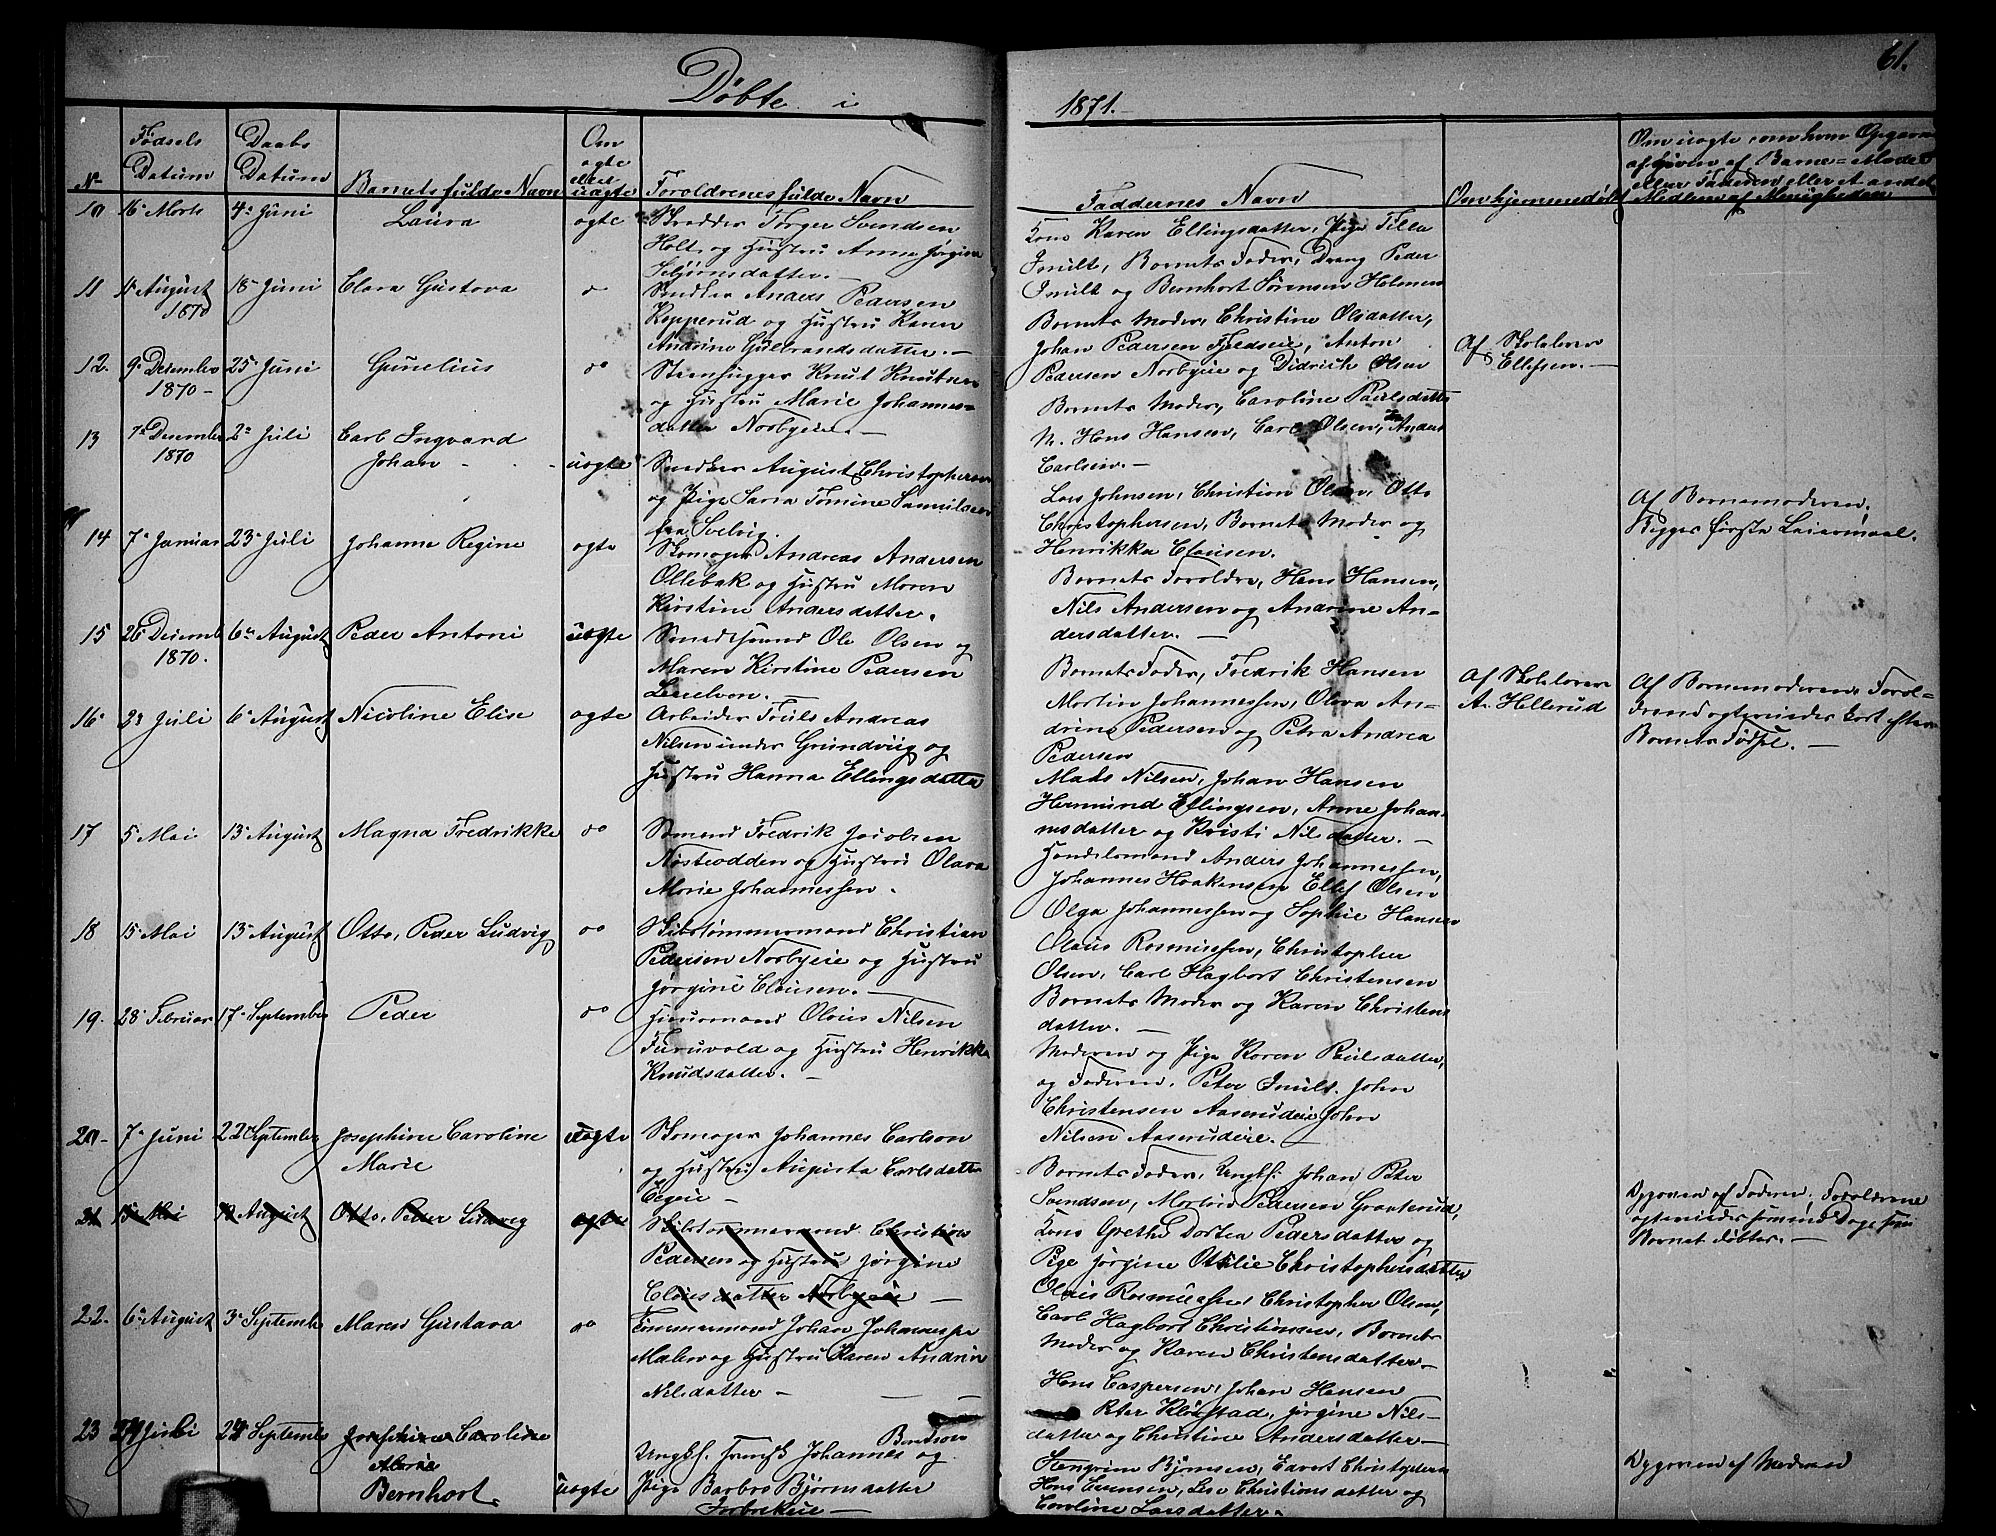 Døbte i
1871.
61.
No
Fødsels Datum
Daabs Datum
Barnets fulde Navn
Om ægte eller uægte
Forældrenes fulde Navn
Faddernes Navn
Om hjemmedøbt
Om uægte, om hvem Opgaven
af Barne-Moder
eller Faderen eller et andet
Medlem af Menigheden
10 16 Marts 4 Juni Laura ægte
Skrædder Torger Svendsen
Holt og Hustru Anne Jørgine
Kone Karen Ellingsdatter, Pige
Barnets Fader, Dreng Peder
og Bernhart Sørensen Holmen
11 August 1870 18 Juni Clara Gustava
Snedker Anders Pedersen
Kopperud og Hustru Karen
Andrine Gulbrandsdatter.
Barnets Moder, Christine Olsdatter,
Johan Pedersen Anton
Pedersen Norbyeie og Didrich Olsen
12. 9 Decembr 1870 25 Juni Gunelius
Steenhugger Knut Knutsen
og Hustru Marie Johannes-
datter Norbyeie.
Barnets Moder, Caroline Paulsdatter
Hans Hansen, Carl Olsen, Anders
Carlsen.
Af Skolelærer
Ellefsen.
13 7 Decembr 1870 2 Juli Carl Ingvard
Johan uægte
Snedker August Christophersen
og Pige Tomine
fra Svelvig.
Lars Johnsen, Christian Olsen, Otto
Christophersen, Barnets Moder og
Henrikka Clausen.
Af Barnemoderen,
Begges første Leiermaal.
14 7 Januar 23 Juli Johanne Regine ægte
Skomager Andreas Andersen
Ollebak og Hustru Maren
Kirstine Andersdatter.
Barnets Forældre, Hans Hansen,
Nils Andersen og Andrine An-
dersdatter.
15 26 Decemb 1870. 6 August Peder Antoni uægte
Ole Olsen og
Maren Kirstine Pedersen
Barnets Fader, Fredrik Hansen
Martin Johannessen, Olava An-
drine Pedersen og Petra Andrea
Pedersen
Af Skolelærer
A. Hellerud
Af Barnemoderen. Foræl-
drene kort efter
Barnets Fødsel.
16 23 Juli 6 August Nicoline Elise ægte
Arbeider Truls Andreas
Nilsen under Grundvig og
Hustru Hanna Ellingsdatter
Mads Nilsen, Johan Hansen
Hermund Ellingsen, Anne Johan-
nesdatter og Kristi Nilsdatter.
17 5 Mai 13 August Magna Fredrikke
Sømand Fredrik Jacobsen
Næsteodden og Hustru Olava
Marie Johannessen.
Handelsmand Anders Johannessen,
Johannes Haakensen Ellef Olsen
Olga Johannessen og Sophie Hansen
18 15 Mai 13 August Otto, Peder Ludvig
Skibstømmermand Christian
Pedersen Norbyeie og Hustru
Jørgine Clausen.
Olaus Rasmussen, Christopher
Olsen, Carl Hagbart Christensen
Barnets Moder og Karen Christens
datter.
19. 28 Februar 17 September Peder
Huusmand Olaus Nilsen
Furuvold og Hustru Henrikke
Knudsdatter.
Moderen og Pige Karen Paulsdatter,
og Faderen, Peter John
Christensen Aaserudeie John
Nilsen Aaserudeie.
20. 7 Juni 22 September Josephine Caroline
Marie uægte
Skomager Johannes Carlson
og Hustru Augusta Carlsdatter
Barnets Fader, Ungkl. Johan Peter
Svendsen, Martin Pedersen
Kone Grethe Dortea Pedersdatter og
Pige Jørgine Otilie Christophersdatter
Opgiven af Faderen. Forældrene
Barnet døbtes.
21 15 Mai 13 August Otto, Peder Ludvig ægte
Skibstømmermand Christian
Pedersen og Hustru Jørgine
Clausdatter Norbyeie
Olaus Rasmussen Christopher Olsen,
Carl Hagbart Christensen, Barnets
Moder og Karen Christensdatter
22. 6 August 3 September Maren Gustava
Tømmermand Johan Johannessen
og Hustru Karen Andrin
Nilsdatter
Hans Caspersen, Johan Hansen
Jørgine Nils-
datter og Christine Andersdatter
23 24 Juli 24 September Josephine Caroline
Marie
Bernhart. uægte
Ungkl. Johannes Berntsen og
Pige Barbro Bjørnsdatter
Christophersen
Lise Christiansdatter og
Caroline Larsdatter.
Opgiven af Moderen